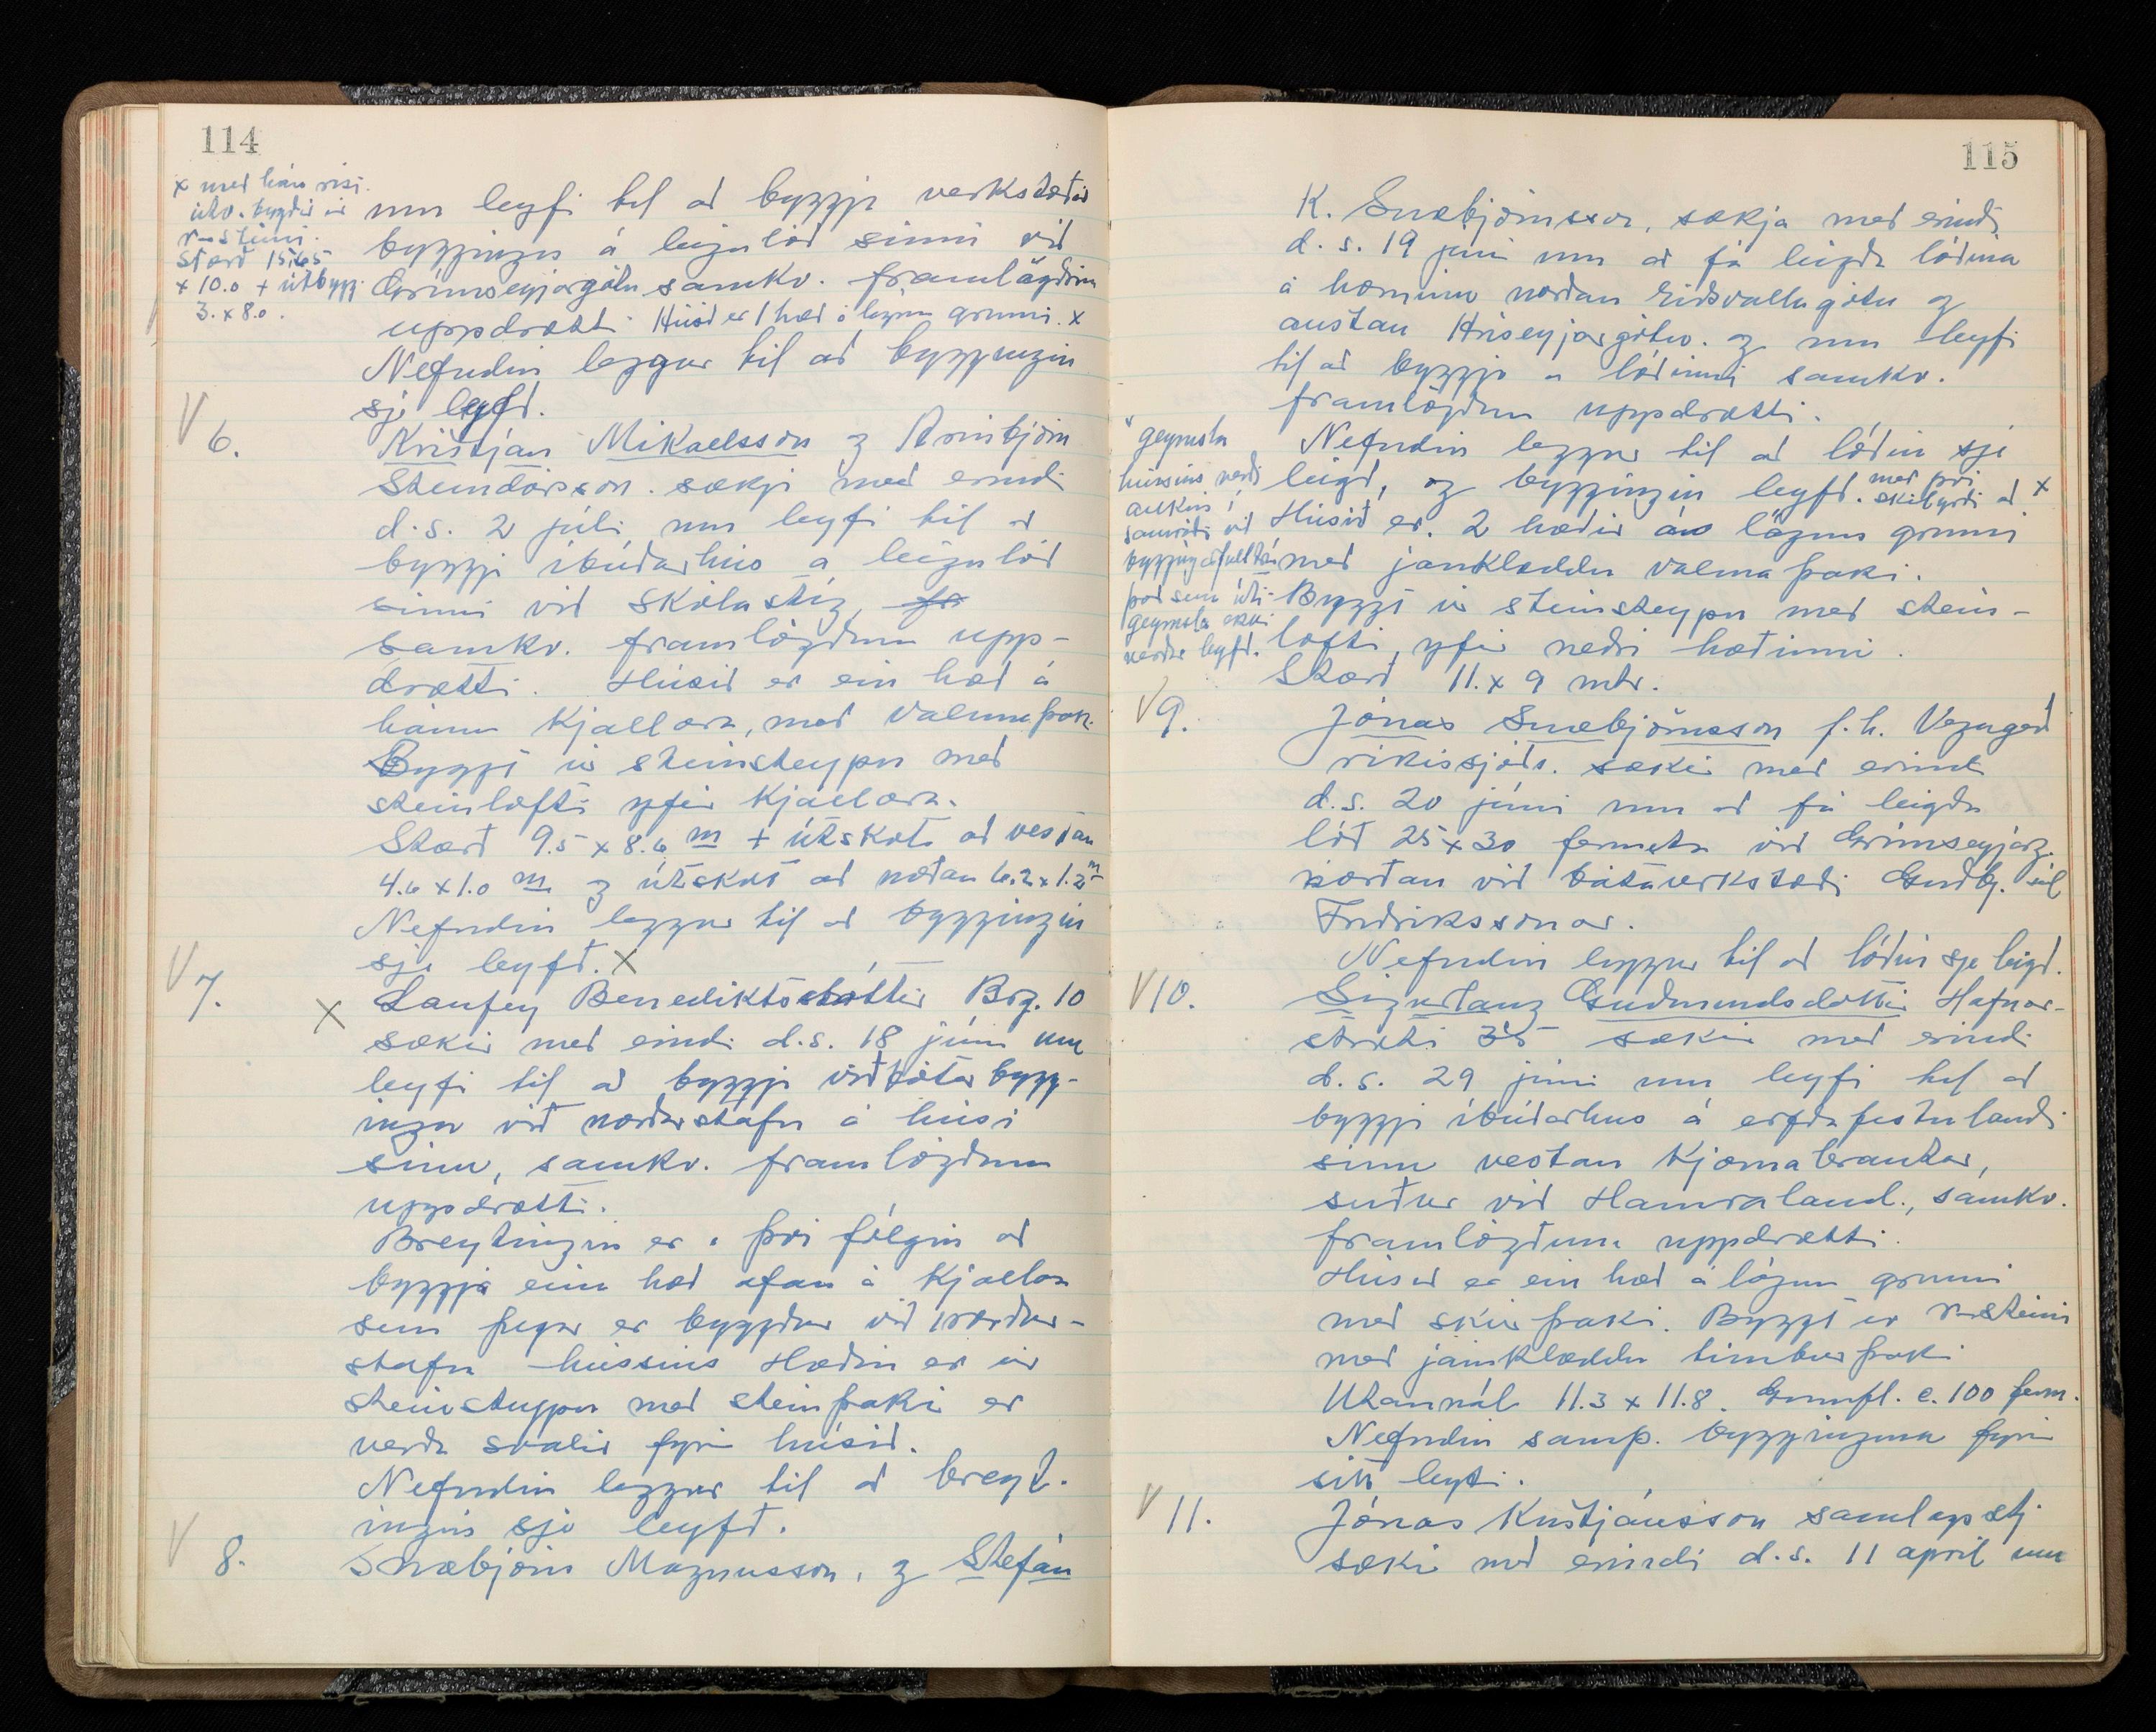 114
x með háu risi.
útv. bygðir úr
r-steini.
Stærð 15.65
x 10.0 + útbygg.
3. x 8.0.
um leyfi til að byggja verkstæðis
byggingu á leigulóð sinni við
Grímseyjargötu samkv. framlögðum
uppdrætti. Húsið er 1 hæð á lágum grunni. x
Nefndin leggur til að byggingin
sje leyfð.
V 6.
Kristján Mikaelsson og Arinbjörn
Steindórsson. sækja með erindi
d.s. 2 júlí um leyfi til að
byggja íbúðarhús á leigulóð
sinni við Skólastíg,
samkv. framlögðum upp-
drætti. Húsið er ein hæð á
háum kjallara, með valmaþaki.
Byggt úr steinsteypu með
steinlofti yfir kjallara.
Stærð 9.5 x 8.6 m + útskoti að vestan
4.6 x 1.0 m og útskot að norðan 6.2 x 1.2 m
Nefndin leggur til að byggingin
sje leyfð. X
V 7.
X Laufey Benediktsdóttir Brg. 10
sækir með eindi d.s. 18 júní um
leyfi til að byggja viðbótar bygg-
ingu við norðurstafn á húsi
sínu, samkv. framlögðum
uppdrætti.
Breytingin er í því fólgin að
byggja eina hæð ofan á kjallara
sem þegar er byggður við norður-
stafn hússins Hæðin er úr
steinsteypu með steinþaki er
verða svalir fyrir húsið.
Nefndin leggur til að breyt-
ingin sje leyfð.
V 8.
Snæbjörn Magnusson, og Stefán
115
K. Snæbjörnsson, sækja með erindi
d.s. 19 júní um að fá leigða lóðina
á horninu norðan Eiðsvallagötu og
austan Hríseyjargötu. og um leyfi
til að byggja á lóðinni samkv.
framlögðum uppdrætti.
Nefndin leggur til að lóðin sje
leigð, og byggingin leyfð. með því skilyrði að x
x geymsla
hússins verði
aukin í
samráði við
byggingafulltrúa
þar sem úti-
geymsla ekki
verður leyfð.
Húsið er. 2 hæðir á lágum grunni
með járnklæddu valma þaki.
Byggt úr steinsteypu með stein-
lofti, yfir neðri hæðinni.
Stærð 11. x 9 mtr.
V 9.
Jónas Snæbjörnsson f.h. Vegagerð
ríkissjóðs. sækir með erindi
d.s. 20 júní um að fá leigða
lóð 25 x 30 fermetra við Grímseyjarg.
norðan við bátaverkstæði Guðbj.
Friðrikssonar.
Nefndin leggur til að lóðin sje leigð.
V 10.
Sigurlaug Guðmundsdóttir Hafnar-
stræti 35 sækir með erindi
d.s. 29 júní um leyfi til að
byggja íbúðarhus á erfðafestulandi
sínu vestan Kjarnabrautar,
suður við Hamraland., samkv.
framlögðum uppdrætti.
Húsið er ein hæð á lágum grunni
með skúr þaki. Byggt úr r-steini
með járnklæddu timbur þaki
Utanmál 11.3 x 11.8. Grunnfl. c. 100 ferm.
Nefndin samþ. bygginguna fyrir
sitt leyti.
V 11.
Jónas Kristjánsson samlagsstj
sækir með erindi d.s. 11 apríl um